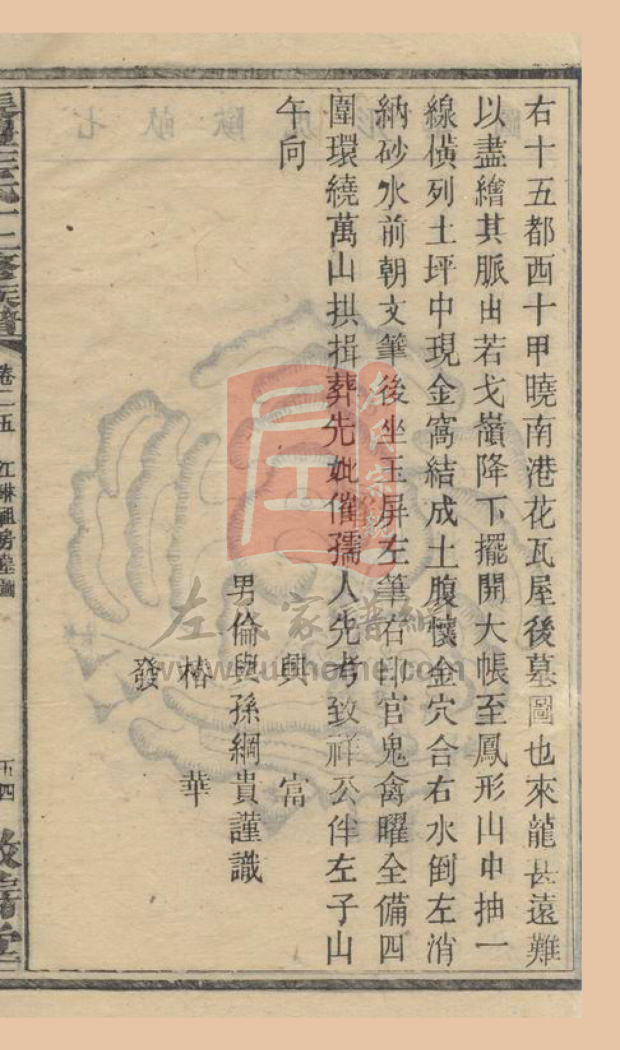 右十五都西十甲曉南港花瓦屋後墓圖也來龍甚遠難
以盡繪其脈由若戈嶺降下擺開大帳至鳳形山中抽一
線橫列土坪中現金窩結成土腹懷金穴合右水倒左消
納砂水前朝文筆後坐玉屏左筆右印官鬼禽曜全備四
圍環繞萬山拱揖葬先妣催孺人先考致祥公伴左子山
午向
興 富
男倫與孫綱貴謹識
椿 華
發
修族譜
卷二五
祖房墓圖
五四
左氏家譜網
www.zuohome.com